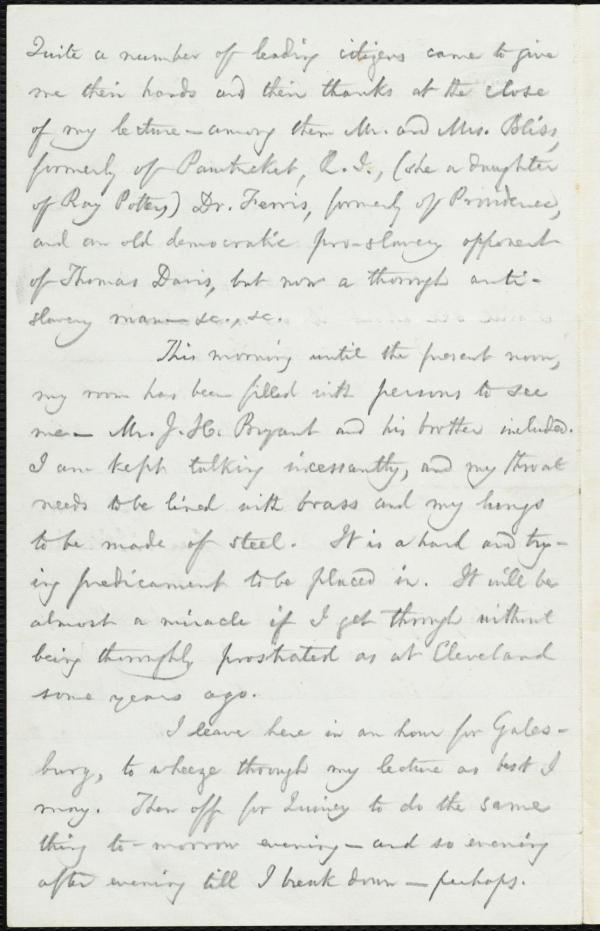 Quite a number of leading citizens came to give
me their hands and their thanks at the close
of my lecture—among them Mr. and Mrs. Bliss,
formerly of Pawtucket, R.I., (she a daughter
of Ray Potter,) Dr. Ferris, formerly of Providence,
and an old democratic pro-slavery opponent
of Thomas Davis, but now a thorough anti-
slavery man—&c., &c.
This morning until the present noon,
my room has been filled with persons to see
me— Mr. J. H. Bryant and his brother included.
I am kept talking incessantly, and my throat
needs to be lined with brass and my lungs
to be made of steel. It is a hard and try-
ing predicament to be placed in. It will be
almost a miracle if I get through without
being thoroughly prostrated as at Cleveland
some years ago.
I leave here in an hour for Gales-
burg, to wheeze through my lecture as best I
may. Then off for Quincy to do the same
thing to-morrow evening—and so evening
after evening till I break down—perhaps.